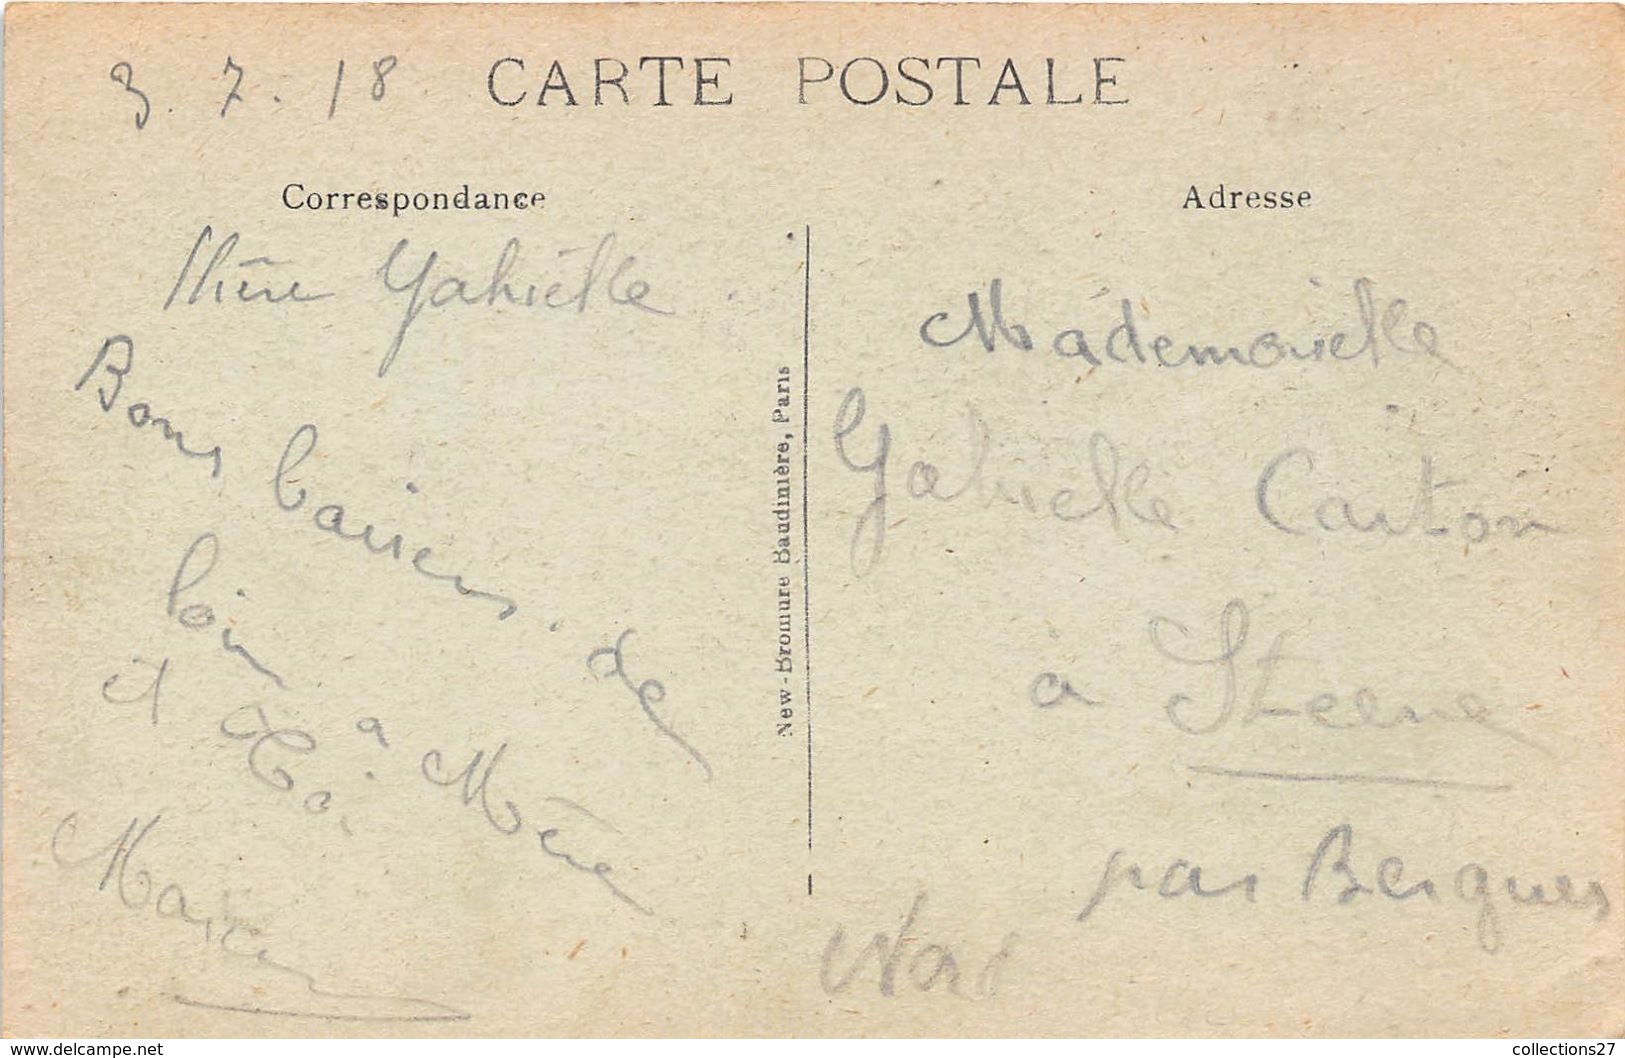 3.7.18
CARTE POSTALE
Correspondance
Adresse
Mère Gabrielle.
Bons baisers de
loin à Mère
et
Marcel
New-Bromure Baudinière, Paris
Mademoiselle
Gabrielle Carton
à Steene
par Bergues
Nord
collections27
www.delcampe.net